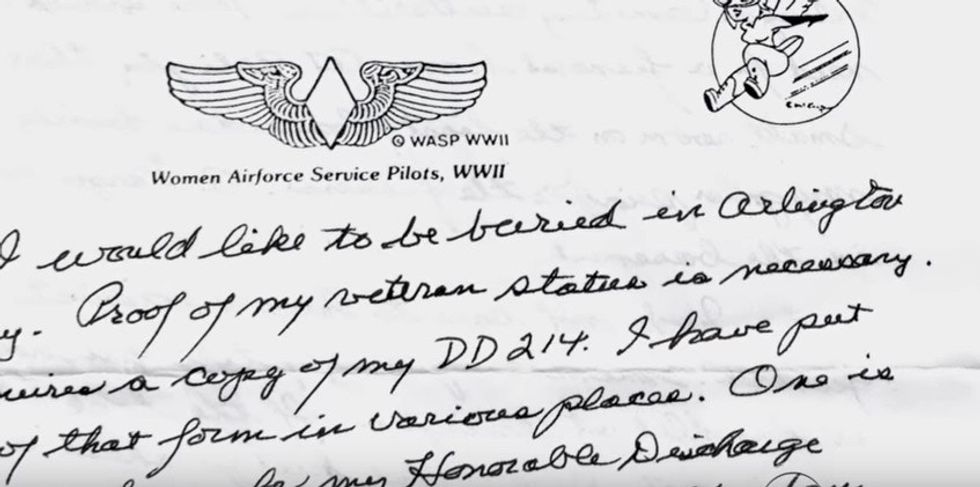 © WASP WWII
Women Airforce Service Pilots, WWII
I would like to be buried in Arlington
y. Proof of my veteran status is necessary.
uires a copy of my DD214. I have put
of that form in various places. One is
my Honorable Discharge